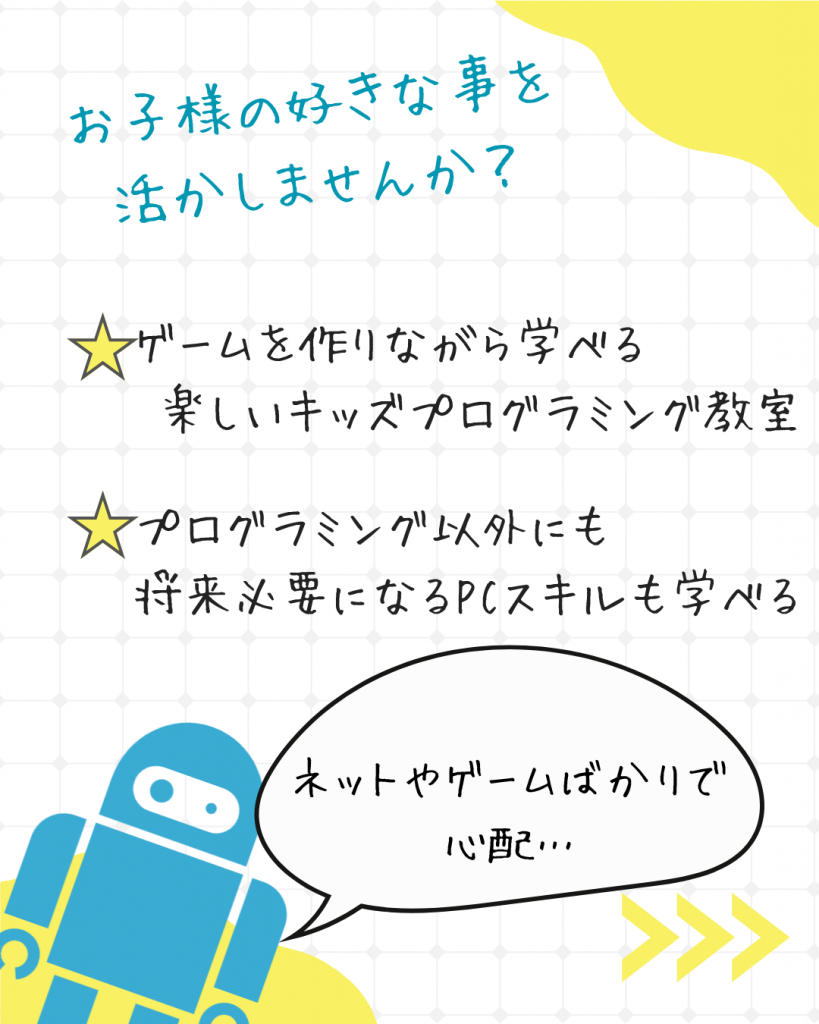 お子様の好きな事を
活かしませんか？
ゲームを作りながら学べる
楽しいキッズプログラミング教室
プログラミング以外にも
将来必要になるPCスキルも学べる
ネットやゲームばかりで
心配…